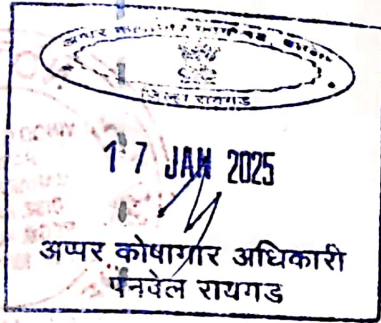 जिल्हा रायगड
17 JAN 2025
अप्पर कोषागार अधिकारी
पनवेल रायगड